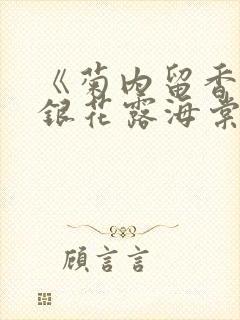 《菊内留香
銀花露海棠
顾言言